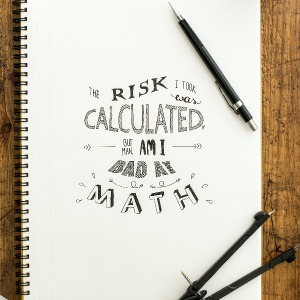 THE RISK I TOOK
was
CALCULATED,
BUT
MAN,
AM I
BAD AT
MATH